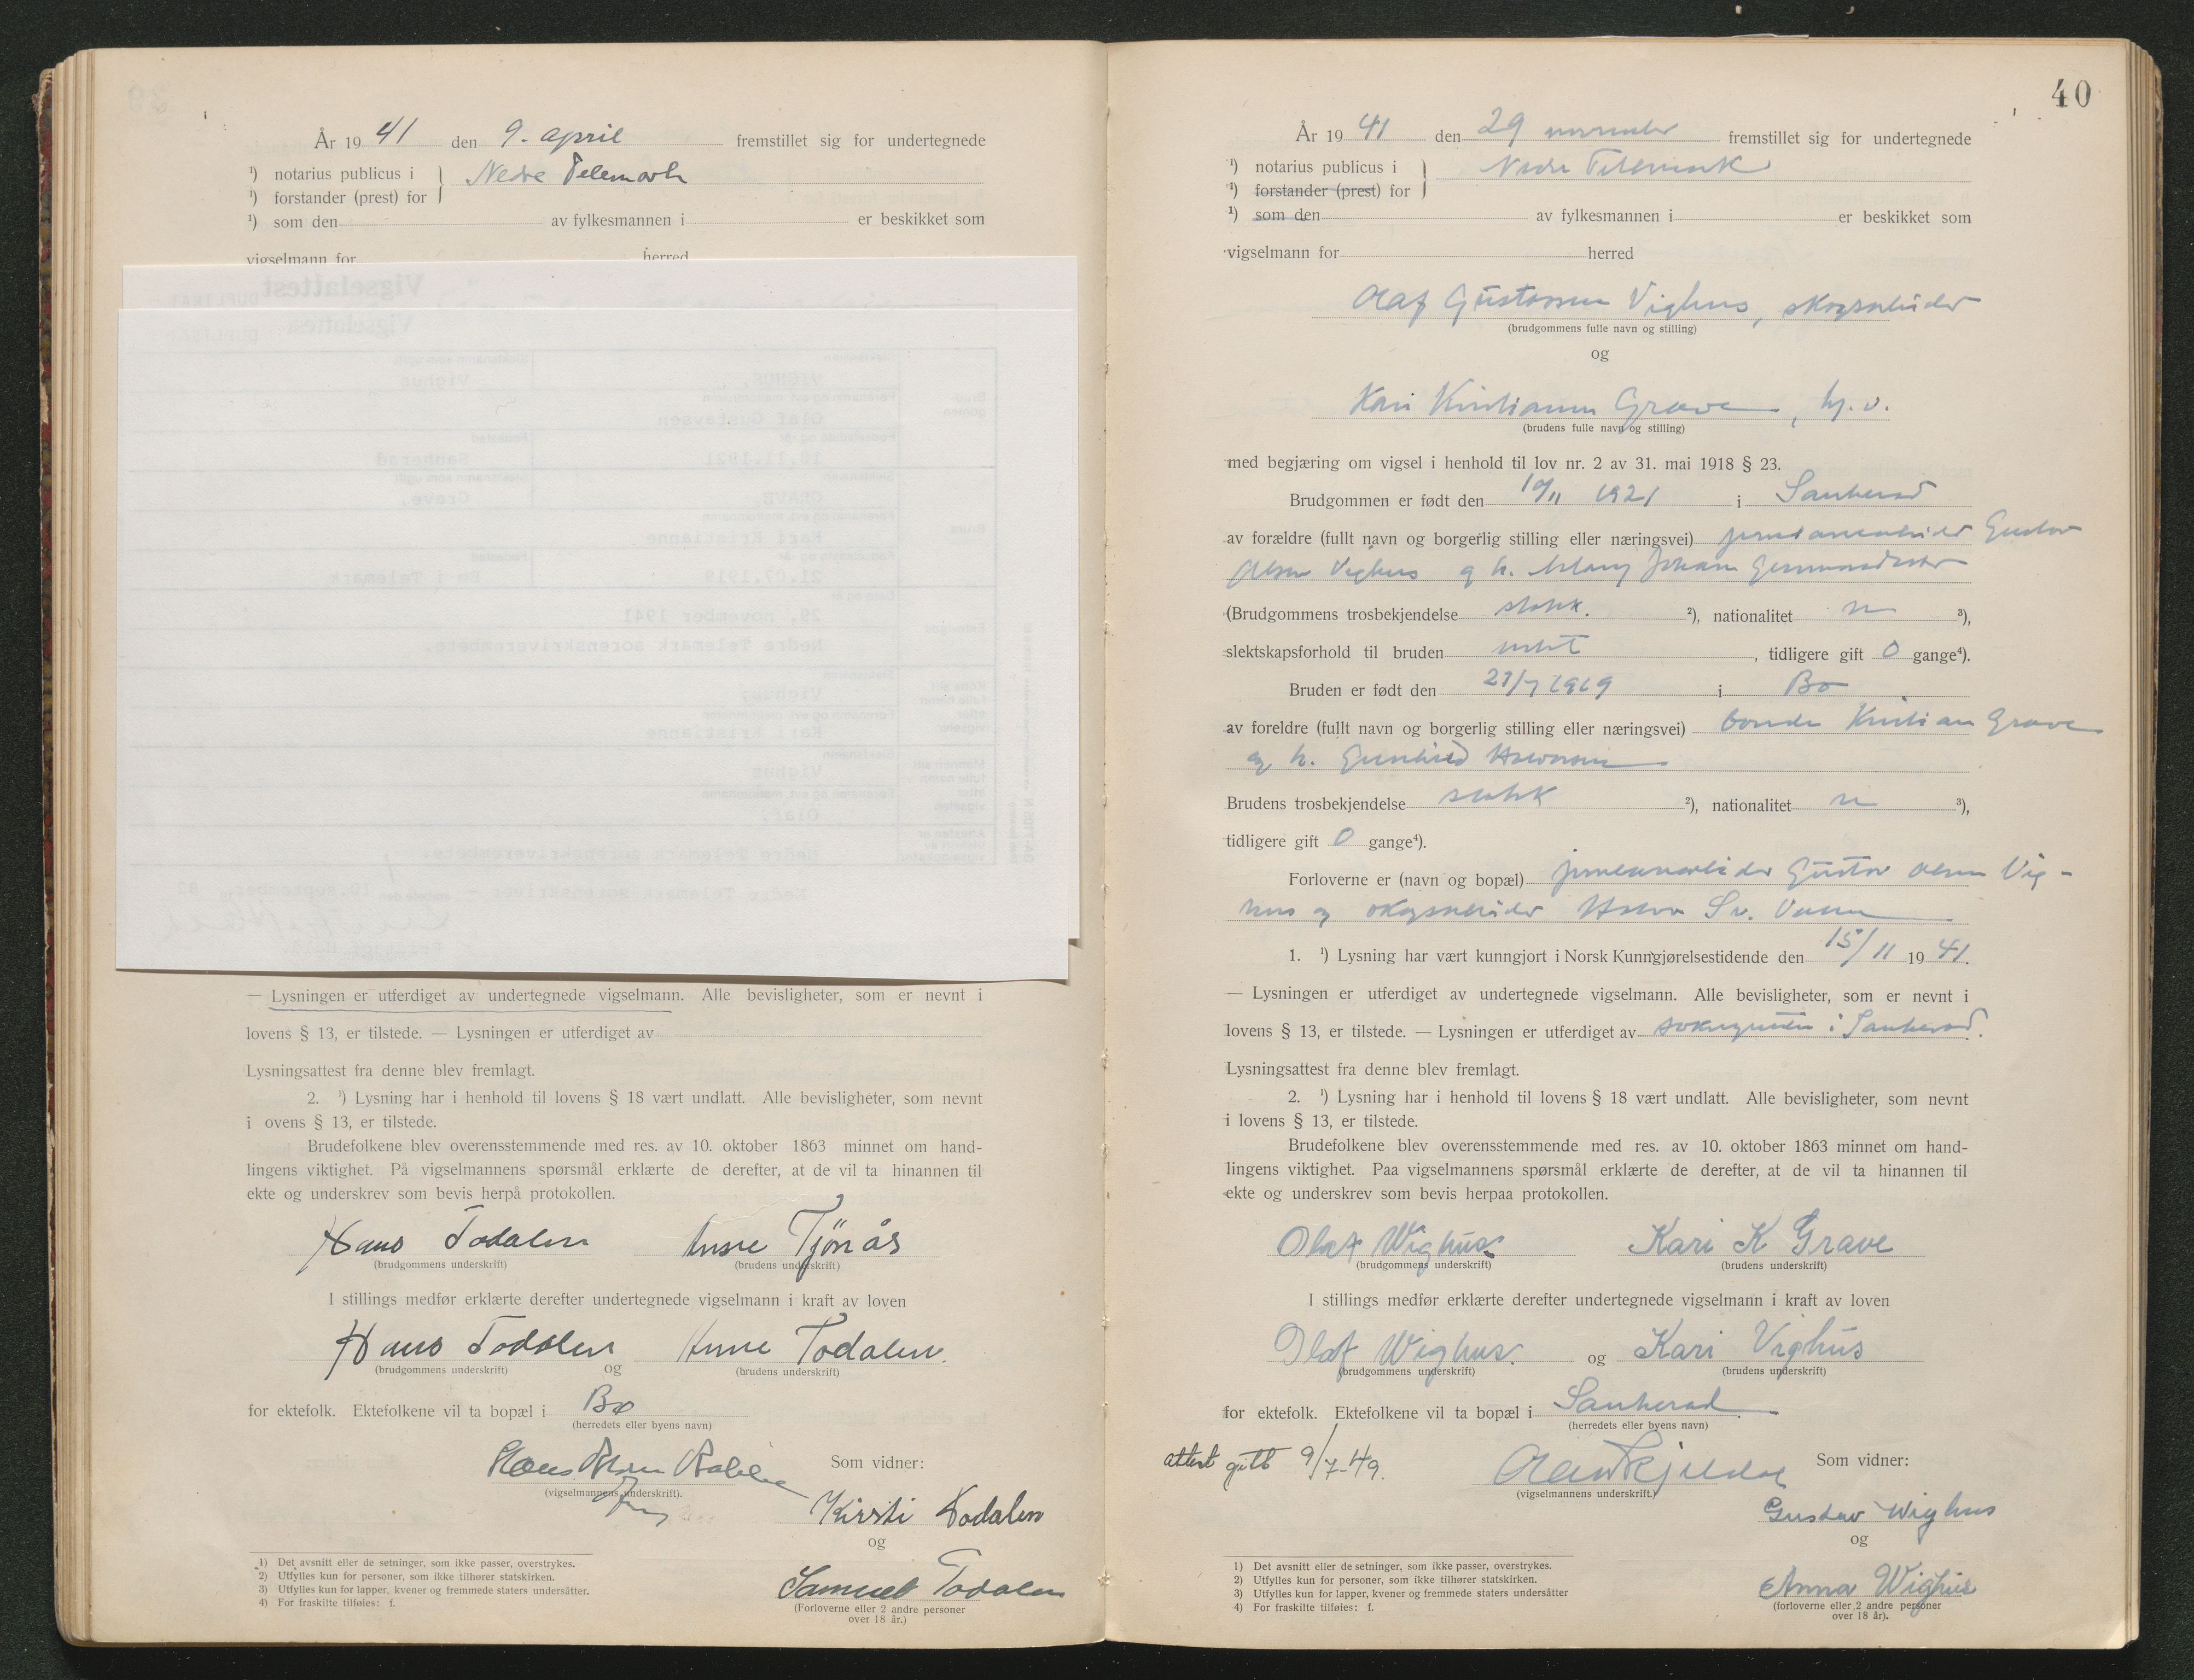 År 19 41 den 9. april fremstillet sig for undertegnede
¹) notarius publicus i } Nedre Telemark
¹) forstander (prest) for
¹) som den av fylkesmannen i er beskikket som
vigselmann for herred
— Lysningen er utferdiget av undertegnede vigselmann. Alle bevisligheter, som er nevnt i
lovens § 13, er tilstede. — Lysningen er utferdiget av
Lysningsattest fra denne blev fremlagt.
2. ¹) Lysning har i henhold til lovens § 18 vært undlatt. Alle bevisligheter, som nevnt
i ovens § 13, er tilstede.
Brudefolkene blev overensstemmende med res. av 10. oktober 1863 minnet om hand-
lingens viktighet. På vigselmannens spørsmål erklærte de derefter, at de vil ta hinannen til
ekte og underskrev som bevis herpå protokollen.
Hans Todalen Anne Tjönås
(brudgommens underskrift) (brudens underskrift)
I stillings medfør erklærte derefter undertegnede vigselmann i kraft av loven
Hans Todalen Anne Todalen.
(brudgommens underskrift) og (brudens underskrift)
for ektefolk. Ektefolkene vil ta bopæl i Bø
(herredets eller byens navn)
Som vidner:
(vigselmannens underskrift).
Kirsti Todalen
og
Samuel Todalen
(Forloverne eller 2 andre personer
over 18 år.)
1) Det avsnitt eller de setninger, som ikke passer, overstrykes.
2) Utfylles kun for personer, som ikke tilhører statskirken.
3) Utfylles kun for lapper, kvener og fremmede staters undersåtter.
4) For fraskilte tilføies: f.
40
År 19 41 den 29 november fremstillet sig for undertegnede
¹) notarius publicus i } Nedre Telemark
¹) forstander (prest) for
¹) som den av fylkesmannen i er beskikket som
vigselmann for herred
Olaf Gustavsen Vighus, skogsarbeider
(brudgommens fulle navn og stilling)
og
Kari Kristianne Grave, hj. v.
(brudens fulle navn og stilling)
med begjæring om vigsel i henhold til lov nr. 2 av 31. mai 1918 § 23.
Brudgommen er født den 19/11 1921 i Sauherad
av forældre (fullt navn og borgerlig stilling eller næringsvei) Gustav
Olsen Vighus og h.
(Brudgommens trosbekjendelse statsk. ²), nationalitet n ³),
slektskapsforhold til bruden intet, tidligere gift 0 gange⁴).
Bruden er født den 21/7 1919 i Bø
av foreldre (fullt navn og borgerlig stilling eller næringsvei) bonde Kristian Grave
og h. Gunhild
Brudens trosbekjendelse statsk ²), nationalitet n ³),
tidligere gift 0 gange⁴).
Forloverne er (navn og bopæl) Gustav Olsen Vig-
hus og skogsarbeider
1. ¹) Lysning har vært kunngjort i Norsk Kunngjørelsestidende den 15/11 1941.
— Lysningen er utferdiget av undertegnede vigselmann. Alle bevisligheter, som er nevnt i
lovens § 13, er tilstede. — Lysningen er utferdiget av sokneprsten i Sauherad.
Lysningsattest fra denne blev fremlagt.
2. ¹) Lysning har i henhold til lovens § 18 vært undlatt. Alle bevisligheter, som nevnt
i lovens § 13, er tilstede.
Brudefolkene blev overensstemmende med res. av 10. oktober 1863 minnet om hand-
lingens viktighet. Paa vigselmannens spørsmål erklærte de derefter, at de vil ta hinannen til
ekte og underskrev som bevis herpaa protokollen.
Olaf Wighus Kari K Grave
(brudgommens underskrift) (brudens underskrift)
I stillings medfør erklærte derefter undertegnede vigselmann i kraft av loven
Olaf Wighus. og Kari Vighus
(brudgommens underskrift) (brudens underskrift)
for ektefolk. Ektefolkene vil ta bopæl i Sauherad
(herredets eller byens navn)
attest gitt 9/7-49.
Som vidner:
(vigselmannens underskrift.)
Gustav Wighus
og
Anna Wighus
(forloverne eller 2 andre personer
over 18 år).
1) Det avsnitt eller de setninger, som ikke passer, overstrykes.
2) Utfylles kun for personer, som ikke tilhører statskirken.
3) Utfylles kun for lapper, kvener og fremmede staters undersåtter
4) For fraskilte tilføies: f.